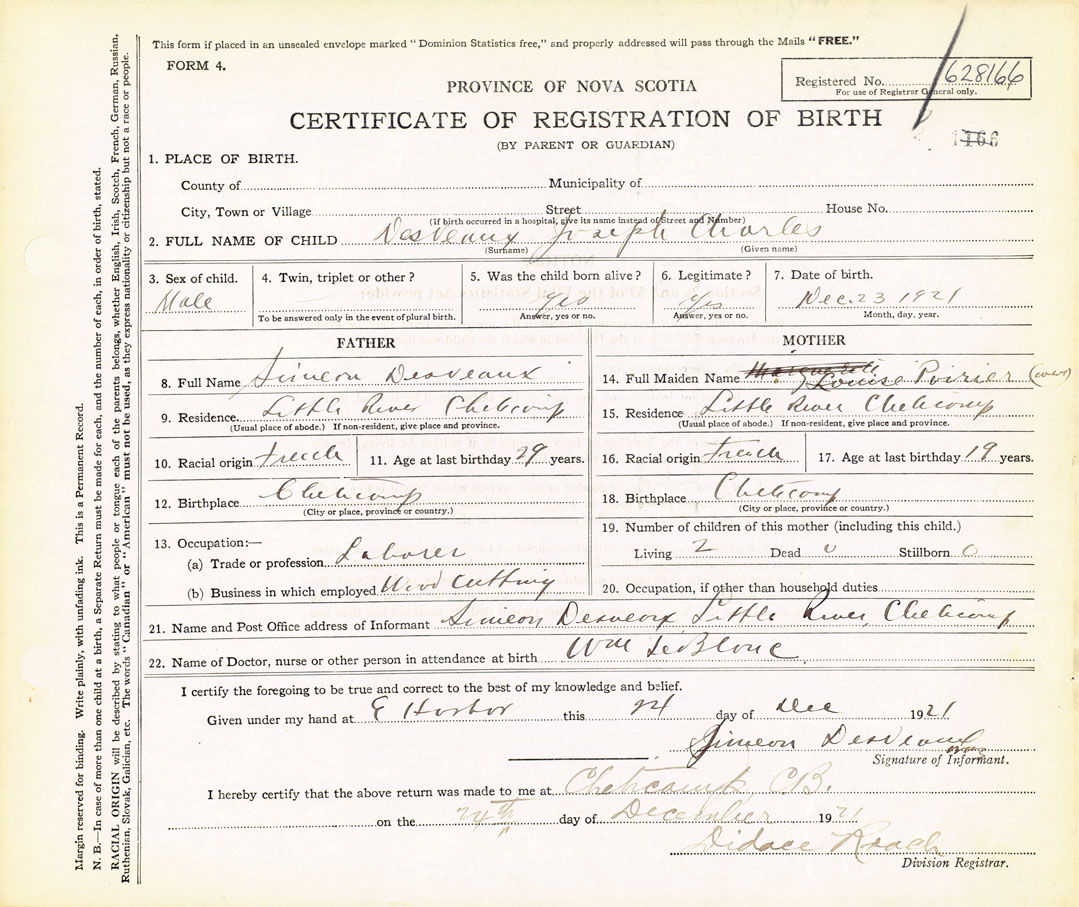 This form if placed in an unsealed envelope marked "Dominion Statistics free," and properly addressed will pass through the Mails "FREE."
FORM 4.
Registered No. 628166
For use of Registrar General only.
PROVINCE OF NOVA SCOTIA
CERTIFICATE OF REGISTRATION OF BIRTH
(BY PARENT OR GUARDIAN)
1166
1. PLACE OF BIRTH.
County of Municipality of
City, Town or Village Street House No.
(If birth occurred in a hospital, give its name instead of Street and Number)
2. FULL NAME OF CHILD Desveaux Joseph Charles
(Surname) (Given name)
3. Sex of child. 4. Twin, triplet or other? 5. Was the child born alive? 6. Legitimate? 7. Date of birth.
Male Yes Yes Dec. 23 1921
To be answered only in the event of plural birth. Answer, yes or no. Answer, yes or no. Month, day, year.
FATHER MOTHER
8. Full Name Simeon Desveaux 14. Full Maiden Name Marguerite Louise Poirier
9. Residence Little River Cheticamp 15. Residence Little River Cheticamp
(Usual place of abode.) If non-resident, give place and province. (Usual place of abode.) If non-resident, give place and province.
10. Racial origin French 11. Age at last birthday 29 years. 16. Racial origin French 17. Age at last birthday 19 years.
12. Birthplace Cheticamp 18. Birthplace Cheticamp
(City or place, province or country.) (City or place, province or country.)
13. Occupation:— 19. Number of children of this mother (including this child.)
(a) Trade or profession Laborer Living 2 Dead 0 Stillborn 0
(b) Business in which employed Wood Cutting 20. Occupation, if other than household duties
21. Name and Post Office address of Informant Simeon Desveaux Little River, Cheticamp
22. Name of Doctor, nurse or other person in attendance at birth Wm LeBlanc
I certify the foregoing to be true and correct to the best of my knowledge and belief.
Given under my hand at E Harbor this 24 day of Dec 1921
Simeon Desveaux
Signature of Informant.
I hereby certify that the above return was made to me at Cheticamp, C.B.
on the 24th day of December 1921
Didace Roach
Division Registrar.
Margin reserved for binding. Write plainly, with unfading ink. This is a Permanent Record.
N. B.—In case of more than one child at a birth, a Separate Return must be made for each, and the number of each, in order of birth, stated.
RACIAL ORIGIN will be described by stating to what people or tongue each of the parents belongs, whether English, Irish, Scotch, French, German, Russian,
Ruthenian, Slovak, Galician, etc. The words "Canadian" or "American" must not be used, as they express nationality or citizenship but not a race or people.